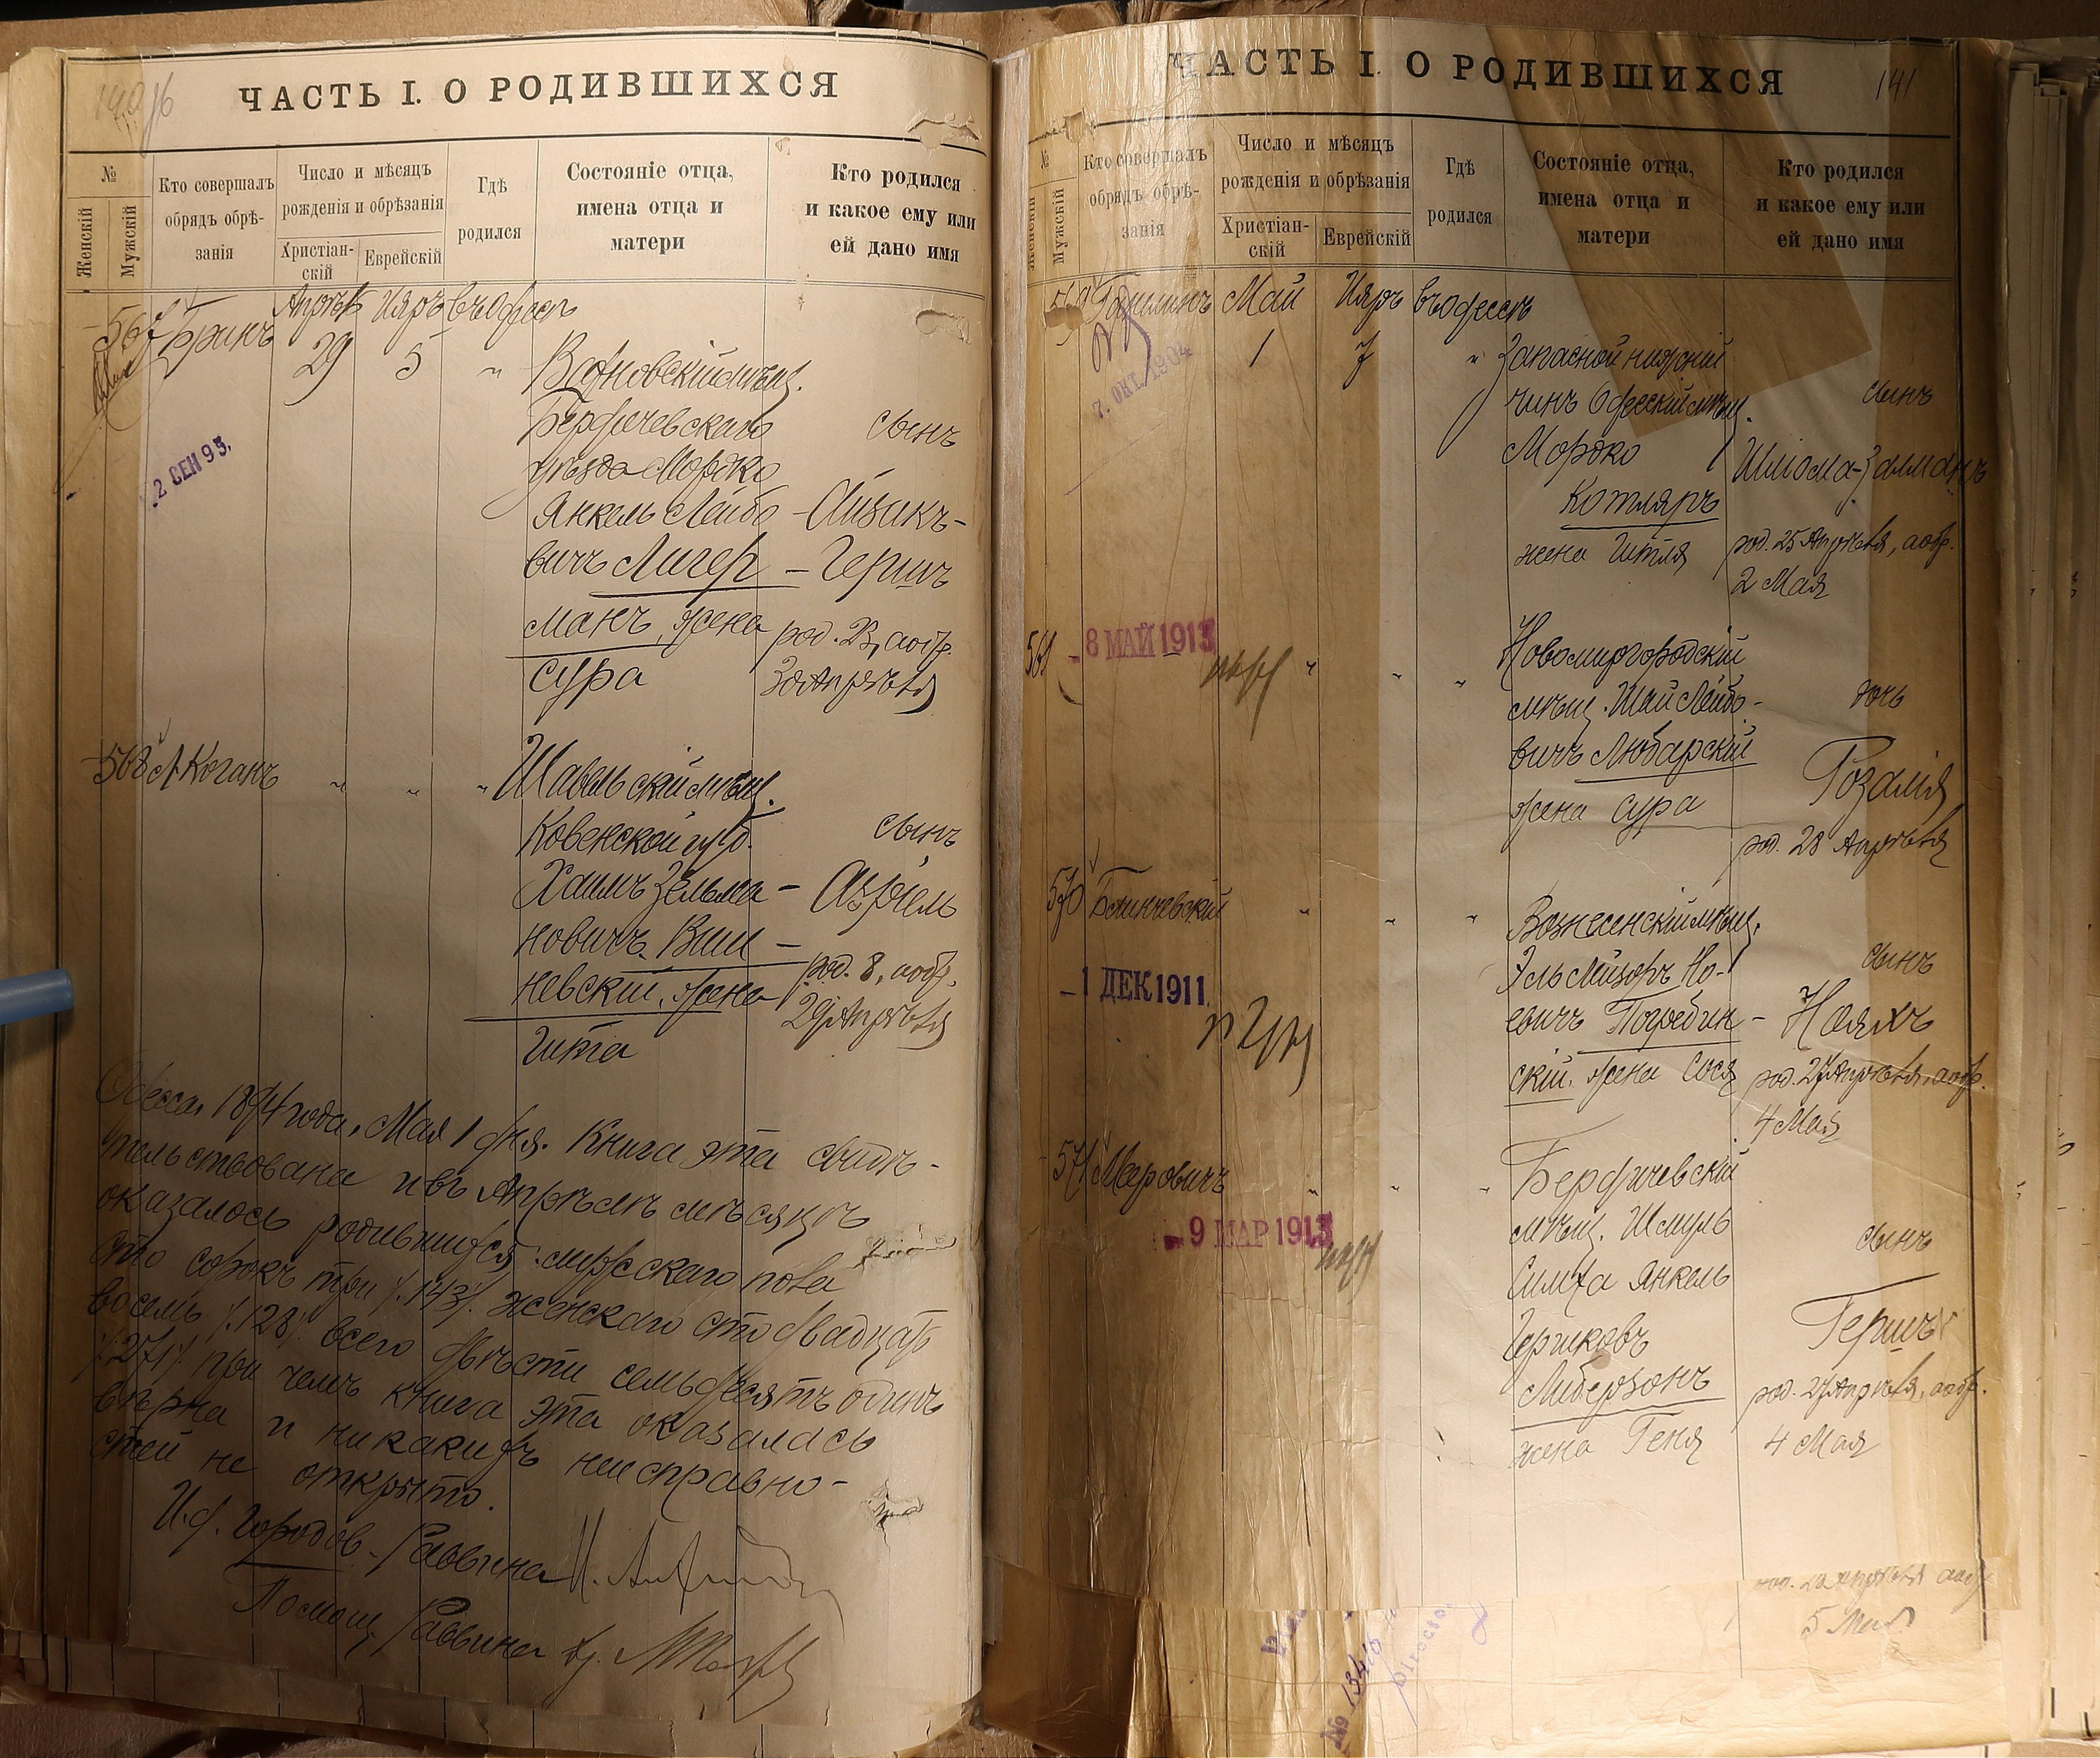 ЧАСТЬ I. О РОДИВШИХСЯ
№
Женскій
Мужскій
Кто совершалъ
обрядъ обрѣ-
занія
Число и мѣсяцъ
рожденія и обрѣзанія
Христіан-
скій
Еврейскій
Гдѣ
родился
Состояніе отца,
имена отца и
матери
Кто родился
и какое ему или
ей дано имя
567 Бракъ
Апрѣль Иіяръ въ Одессѣ
29 5 "
12 СЕН 93.
мѣщ.
Бердичевскаго
уѣзда Мордко
Янкель Лейбо-
вичъ Лигер-
манъ, жена
Сура
сынъ
Айзикъ-
Гершъ
род. 23, аобр.
30 Апрѣля
568 Л. Коганъ " " "
Шавельскій мѣщ.
Ковенской губ.
Хаимъ Зельма-
новичъ Виш-
невскій, жена
Гитта
сынъ
Азріель
род. 8, аобр.
29 Апрѣля
Одесса, 1894 года, Мая 1 дня. Книга эта свидѣ-
тельствована и въ Апрѣлѣ мѣсяцѣ
оказалось родившихся: мужскаго пола
сто сорокъ три /.143/. женскаго сто двадцать
восемь /.128/. всего двѣсти семьдесятъ одинъ
/.271/. при чемъ книга эта оказалась
вѣрна и никакихъ неисправно-
стей не открыто.
И. д. Городов. Раввина
Помощ. Раввина
ЧАСТЬ I. О РОДИВШИХСЯ
141
№
Женскій
Мужскій
Кто совершалъ
обрядъ обрѣ-
занія
Число и мѣсяцъ
рожденія и обрѣзанія
Христіан-
скій
Еврейскій
Гдѣ
родился
Состояніе отца,
имена отца и
матери
Кто родился
и какое ему или
ей дано имя
569
Май Иіяръ въ Одессѣ
1 7 "
7. ОКТ. 1904
Запасной нижній
чинъ Одесскій мѣщ.
Мордко
Котляръ
жена Гитля
сынъ
Шлiома-Залманъ
род. 25 Апрѣля, аобр.
2 Мая
561
8 МАЙ 1913
" " "
Новомиргородскій
мѣщ. Шай Лейбо-
вичъ Любарскій
жена Сура
дочь
Розалія
род. 28 Апрѣля
570
" " "
1 ДЕК 1911.
Вознесенскій мѣщ.
Эль Лейзоръ Но-
евичъ Погребин-
скій, жена Сося
сынъ
Нояхъ
род. 27 Апрѣля, аобр.
4 Мая
571 Меровичъ " " "
9 МАР 1913
Бердичевскій
мѣщ. Шмуль
Симха Янкель
Гершковъ
Либерзонъ
жена Геня
сынъ
Гершъ
род. 27 Апрѣля, аобр.
4 Мая
5 Мая